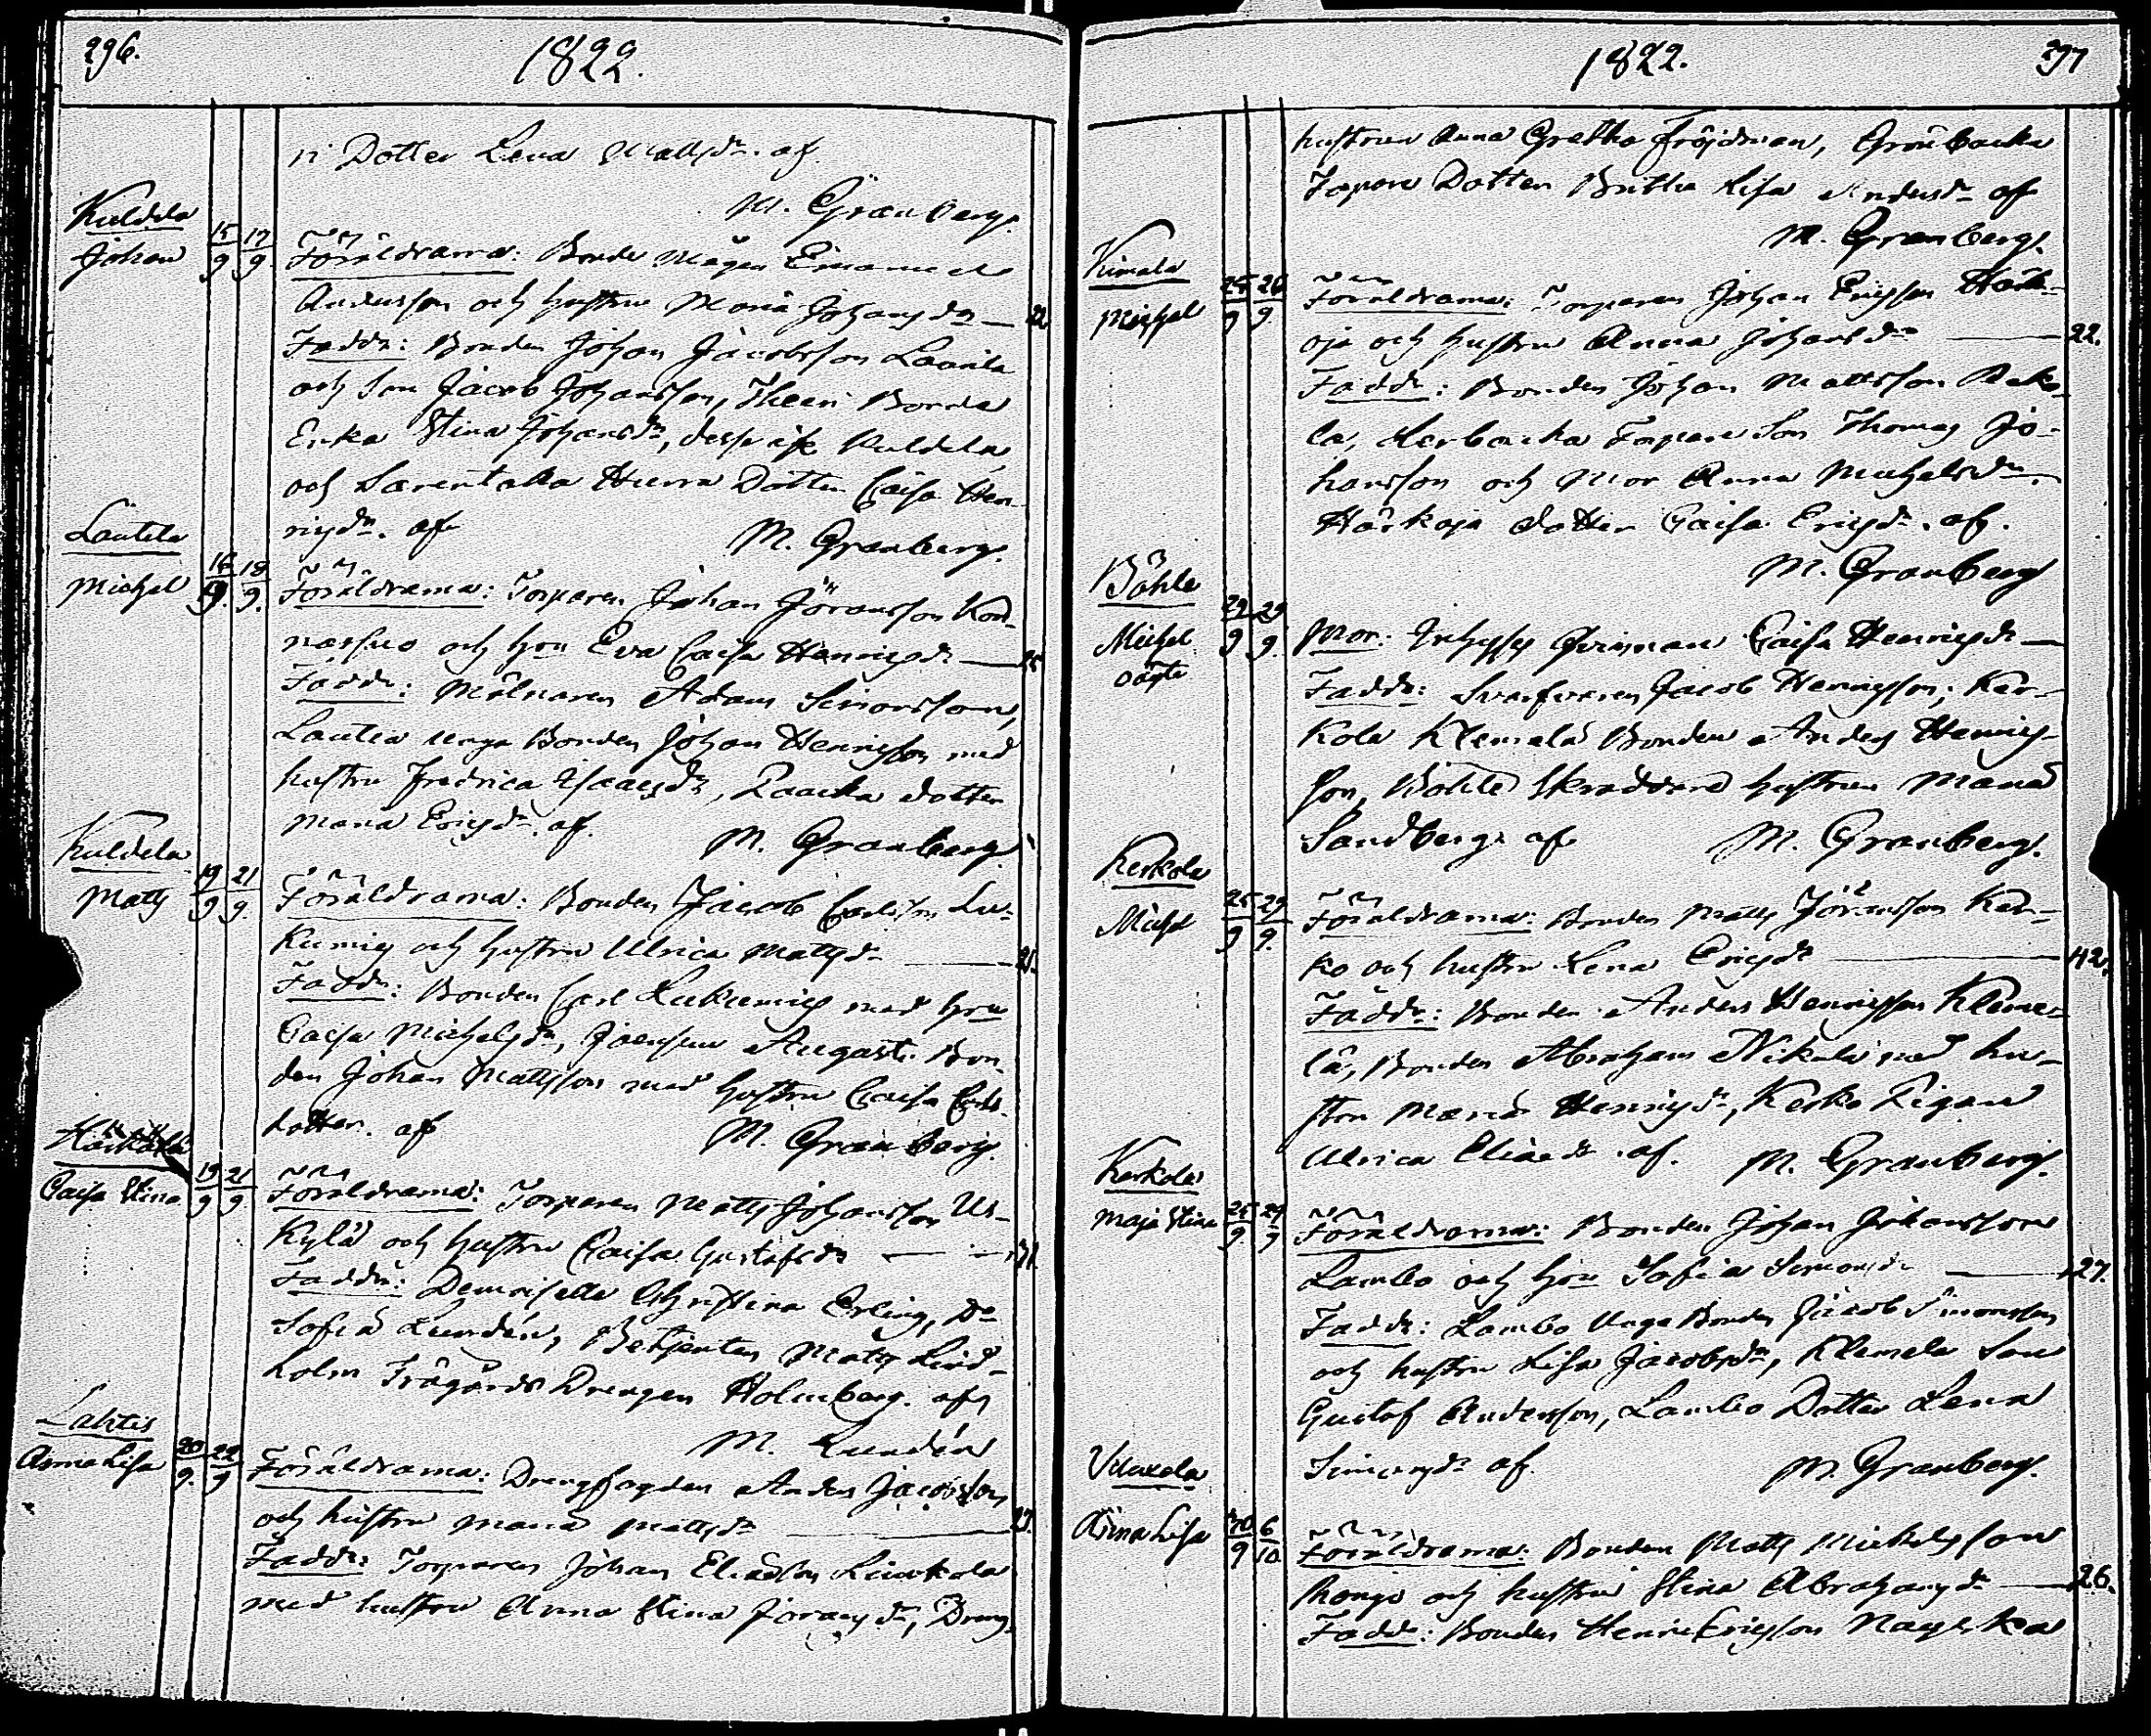 296.
1822.
ri Dotter Lena Mattsdr. af
M. Granberg.
Kuldela
Johan
15/9 17/9
Föräldrarna: Bonde Mågen Emanuel
Andersson och hustru Maria Johansdr — 22
Faddr: Bonden Johan Jacobsson Laurila
och Son Jacob Johansson, Bonde
Erika Stina Johansdr, Kuldela
och Sarentaka Dotter Caisa Hen-
riksdr. af
M. Granberg.
Lautela
Michel
16/9 18/9
Föräldrarna: Torparen Johan Göransson Kor-
narsuo och hru Eva Caisa Henricsdr —
Faddr: Mölnaren Adam Simonsson,
Lautela unga Bonden Johan Henricsson med
hustru Fredrica Isaacsdr, dotter
Maria Ericsdr. af
M. Granberg
Kuldela
Matts
19/9 21/9
Föräldrarna: Bonden Jacob Carlsson Lu-
kumies och hustru Ulrica Mattsdr —
Faddr: Bonden Carl Lukumies med hru
Caisa Michelsdr, Joensuu Bon-
den Johan Mattsson med hustru Caisa Carls-
dotter. af
M. Granberg.
Caisa Stina
19/9 21/9
Föräldrarna: Torparen Matts Johansson Us-
kylä och hustru Caisa Gustafsdr — 31.
Faddr: Demoiselle Christina Erling, Do
Sofia Lundén, Betjenten Matts Lind-
holm Trägårds Drengen Holmberg. af
M. Lundén
Lahtis
Anna Lisa
20/9 22/9
Föräldrarna: Drengfogden Anders Jacobsson
och hustru Maria Mattsdr —
Faddr: Torparen Johan Eliasson
med hustru Anna Stina Göransdr, Dreng
1822.
297
hustrun Anna Gretha Fröjdman, Grönbacka
Torpare Dotter Britha Lisa Andersdr af
M. Granberg.
Kimala
Michel
25/9 26/9
Föräldrarna: Torparen Johan Ericsson Härk-
oja och hustru Anna Johansdr — 22.
Faddr: Bonden Johan Mattsson
la, Lerbacka Torpare Son Thomas Jo-
hansson och Mor Anna Michelsdr
Härkoja dotter Caisa Ericsdr. af.
M. Granberg
Böhle
Michel
oägta
29/9 29/9
Mor: Inhyses Qvinnan Caisa Henricsdr —
Faddr: Svarfvaren Jacob Henricsson, Ker-
kola Klemela Bonden Anders Henrics-
son, Böhle Skräddare hustrun Maria
Sandberg. af
M. Granberg.
Kerkola
Michel
25/9 29/9
Föräldrarna: Bonden Matts Jöransson Ker-
ko och hustru Lena Ericsdr — 42.
Faddr: Bonden Anders Henricsson Kleme-
lä, Bonden Abraham Nikula med hu-
stru Maria Henricsdr, Kerko Pigan
Ulrica Eliaedr. af.
M. Granberg.
Kerkola
Maja Stina
25/9 29/9
Föräldrarna: Bonden Johan Johansson
Lambo och hru Sofia Simonsdr — 27.
Faddr: Lambo Unga Bonden Jacob Simonsson
och hustru Lisa Jacobsdr, Klemela Son
Gustof Andersson, Lambo Dotter Lena
Simonsdr af.
M. Granberg.
Anna Lisa
30/9 6/10
Föräldrarna: Bonden Matts Michelsson
och hustru Stina Abrahamsdr — 26.
Faddr: Bonden Henric Ericsson